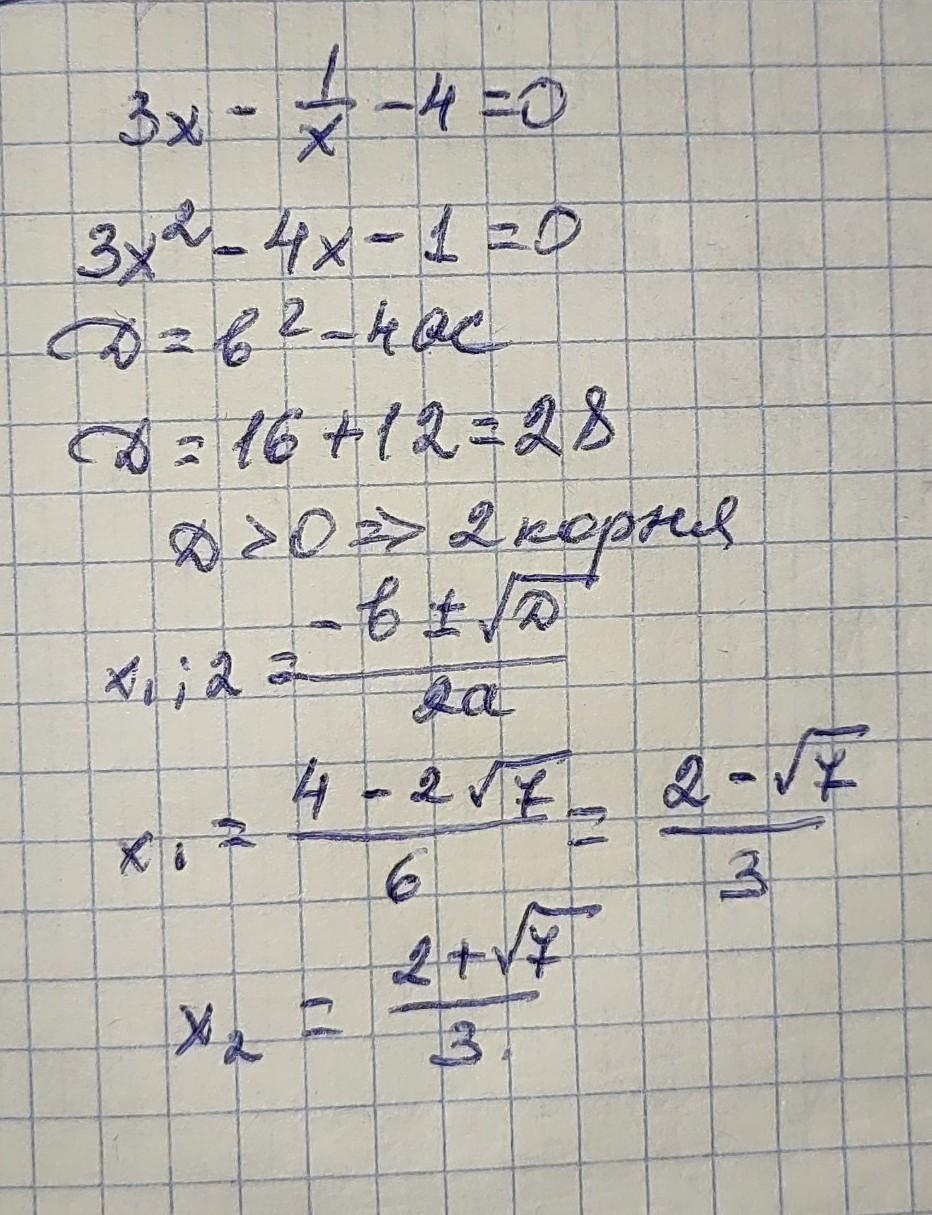 3x - 1/x - 4 = 0
3x² - 4x - 1 = 0
D = b² - 4ac
D = 16 + 12 = 28
D > 0 => 2 корня
x₁;₂ = (-b ± √D)/2a
x₁ = (4 - 2√7)/6 = (2 - √7)/3
x₂ = (2 + √7)/3